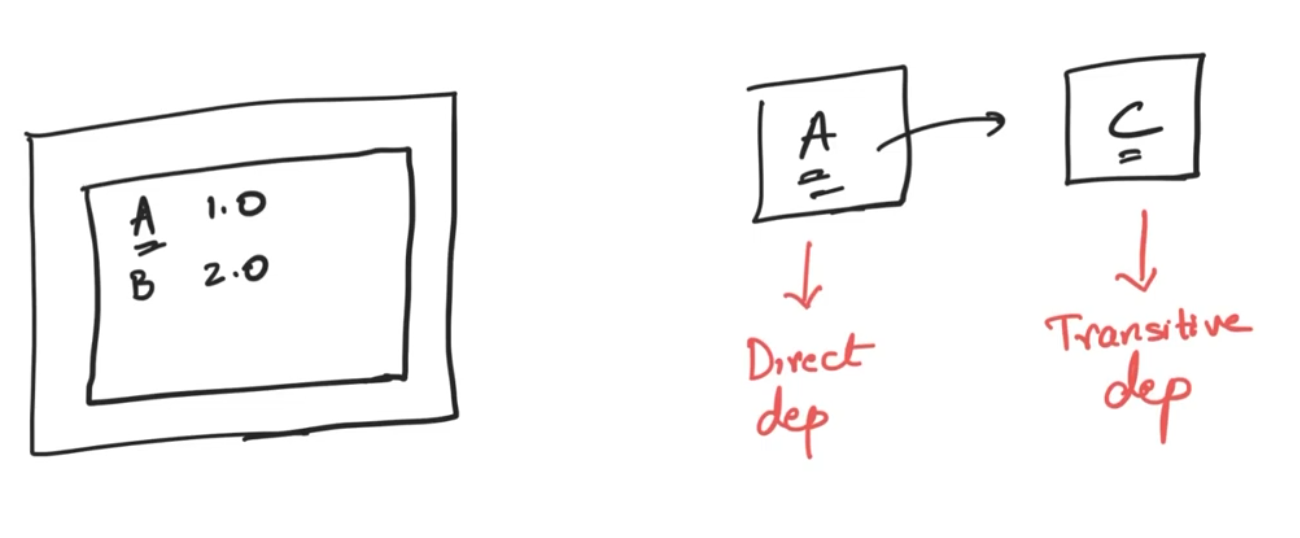 A 1.0
B 2.0
A
C
Direct
dep
Transitive
dep